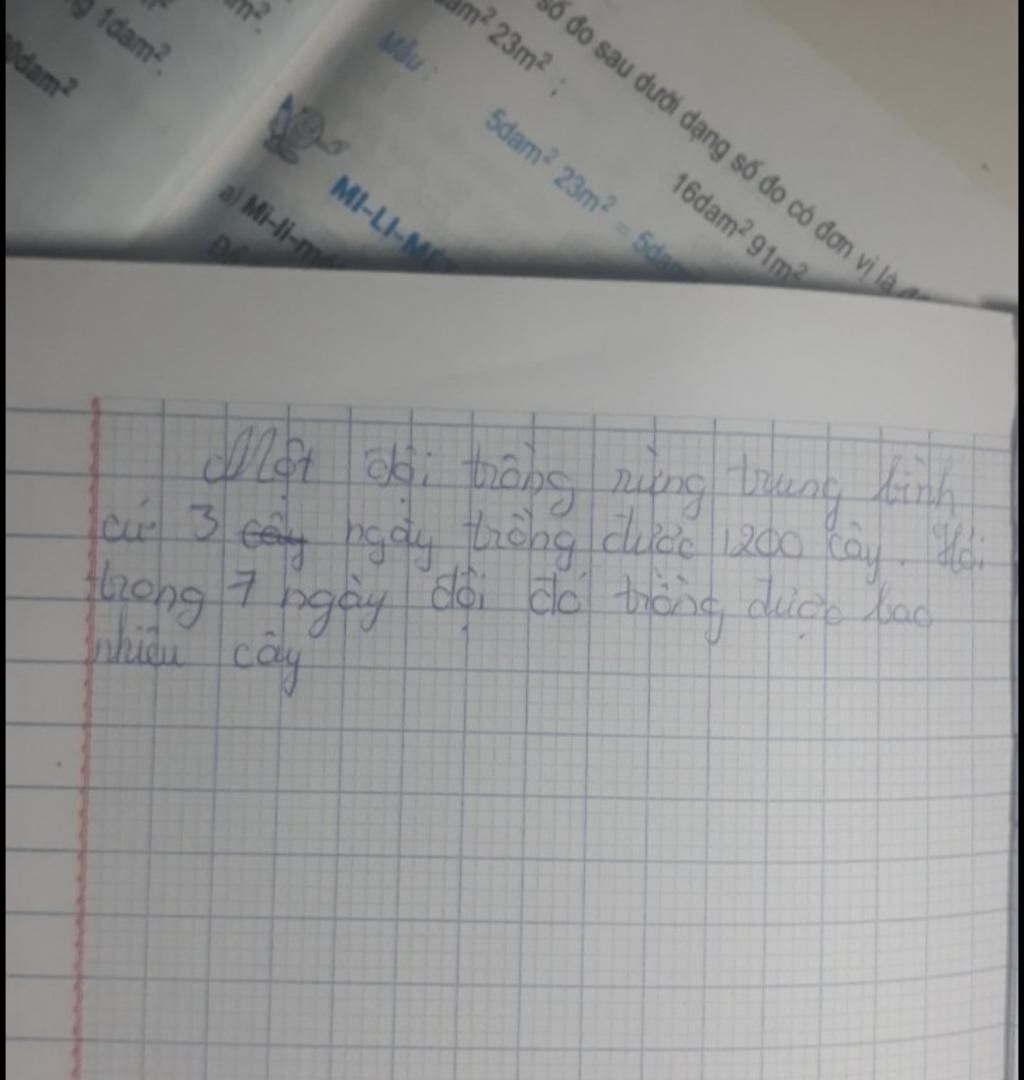 g 1dam².
m².
0dam²
số đo sau dưới dạng số đo có đơn vị là
dam² 23m² ;
16dam² 91m²
Mẫu :
5dam² 23m² = 5dam
MI-LI-MÉ
a) Mi-li-mé
Một đội trồng rừng trung bình
cứ 3 cây ngày trồng được 1200 cây. Hỏi
trong 7 ngày đội đó trồng được bao
nhiêu cây